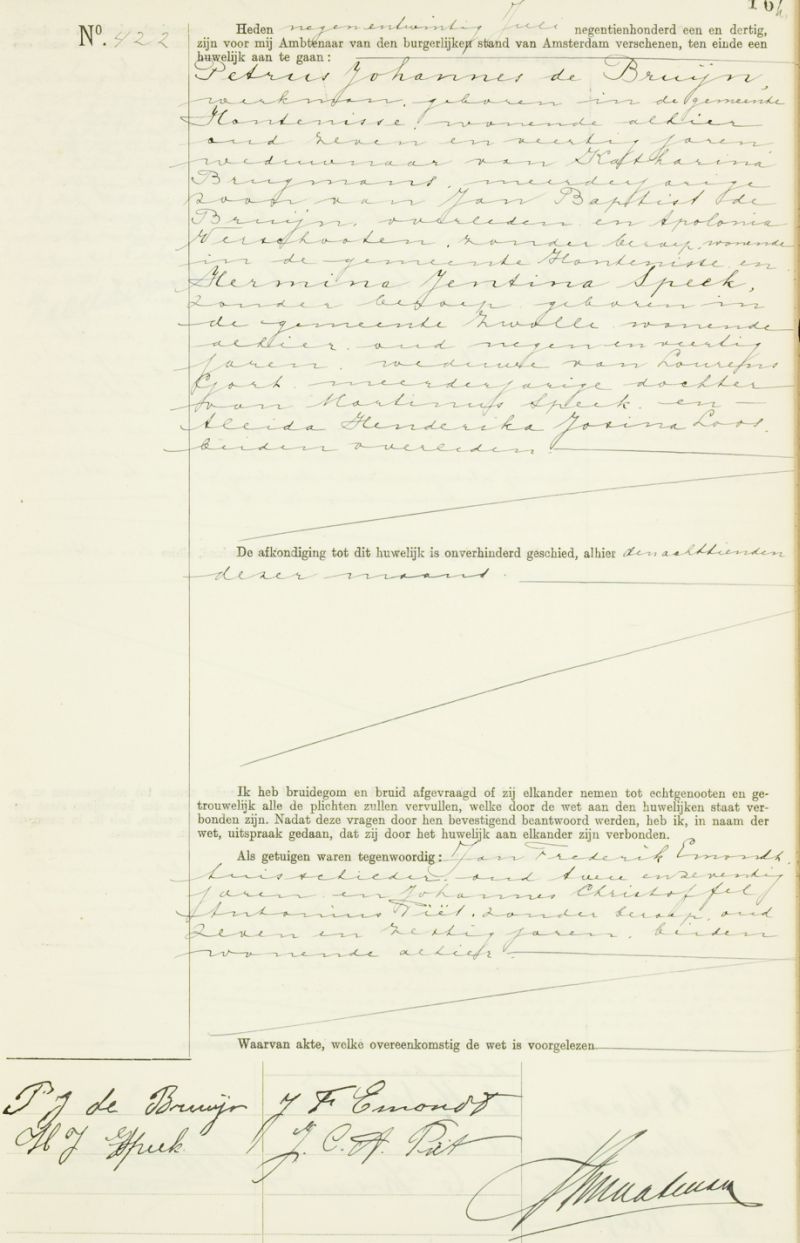 164
Nº. 422
Heden negenentwintig Juli negentienhonderd een en dertig,
zijn voor mij Ambtenaar van den burgerlijken stand van Amsterdam verschenen, ten einde een
huwelijk aan te gaan:
Petrus Johannes de Bruijn,
werkman, geboren in de gemeente
Hontenisse, wonende alhier
oud zeven en veertig jaren,
weduwnaar van Katharina
Brugmans, meerderjarige
zoon van Jan Baptist de
Bruijn, overleden en Apolonia
Verschooten, zonder beroep, wonende
in de gemeente Hontenisse en
Hermina Jentina Speek,
zonder beroep geboren in
de gemeente Zwolle wonende
alhier, oud negen en veertig
jaren, weduwe van Lourens
meerderjarige dochter
van Martinus Speek en
Aleida Henderika Josina Loos,
beiden overleden.
De afkondiging tot dit huwelijk is onverhinderd geschied, alhier den achttienden
dezer maand.
Ik heb bruidegom en bruid afgevraagd of zij elkander nemen tot echtgenooten en ge-
trouwelijk alle de plichten zullen vervullen, welke door de wet aan den huwelijken staat ver-
bonden zijn. Nadat deze vragen door hen bevestigend beantwoord werden, heb ik, in naam der
wet, uitspraak gedaan, dat zij door het huwelijk aan elkander zijn verbonden.
Als getuigen waren tegenwoordig: Jan Frederik Emondt,
oud twee en zeventig
jaren en Johannes Christoffel
Antonius Piët, zonder beroep, oud
zeven en zestig jaren, beiden
wonende alhier.
Waarvan akte, welke overeenkomstig de wet is voorgelezen
P J de Bruijn
J F Emondt
H J Speek
J. C. A. Piët